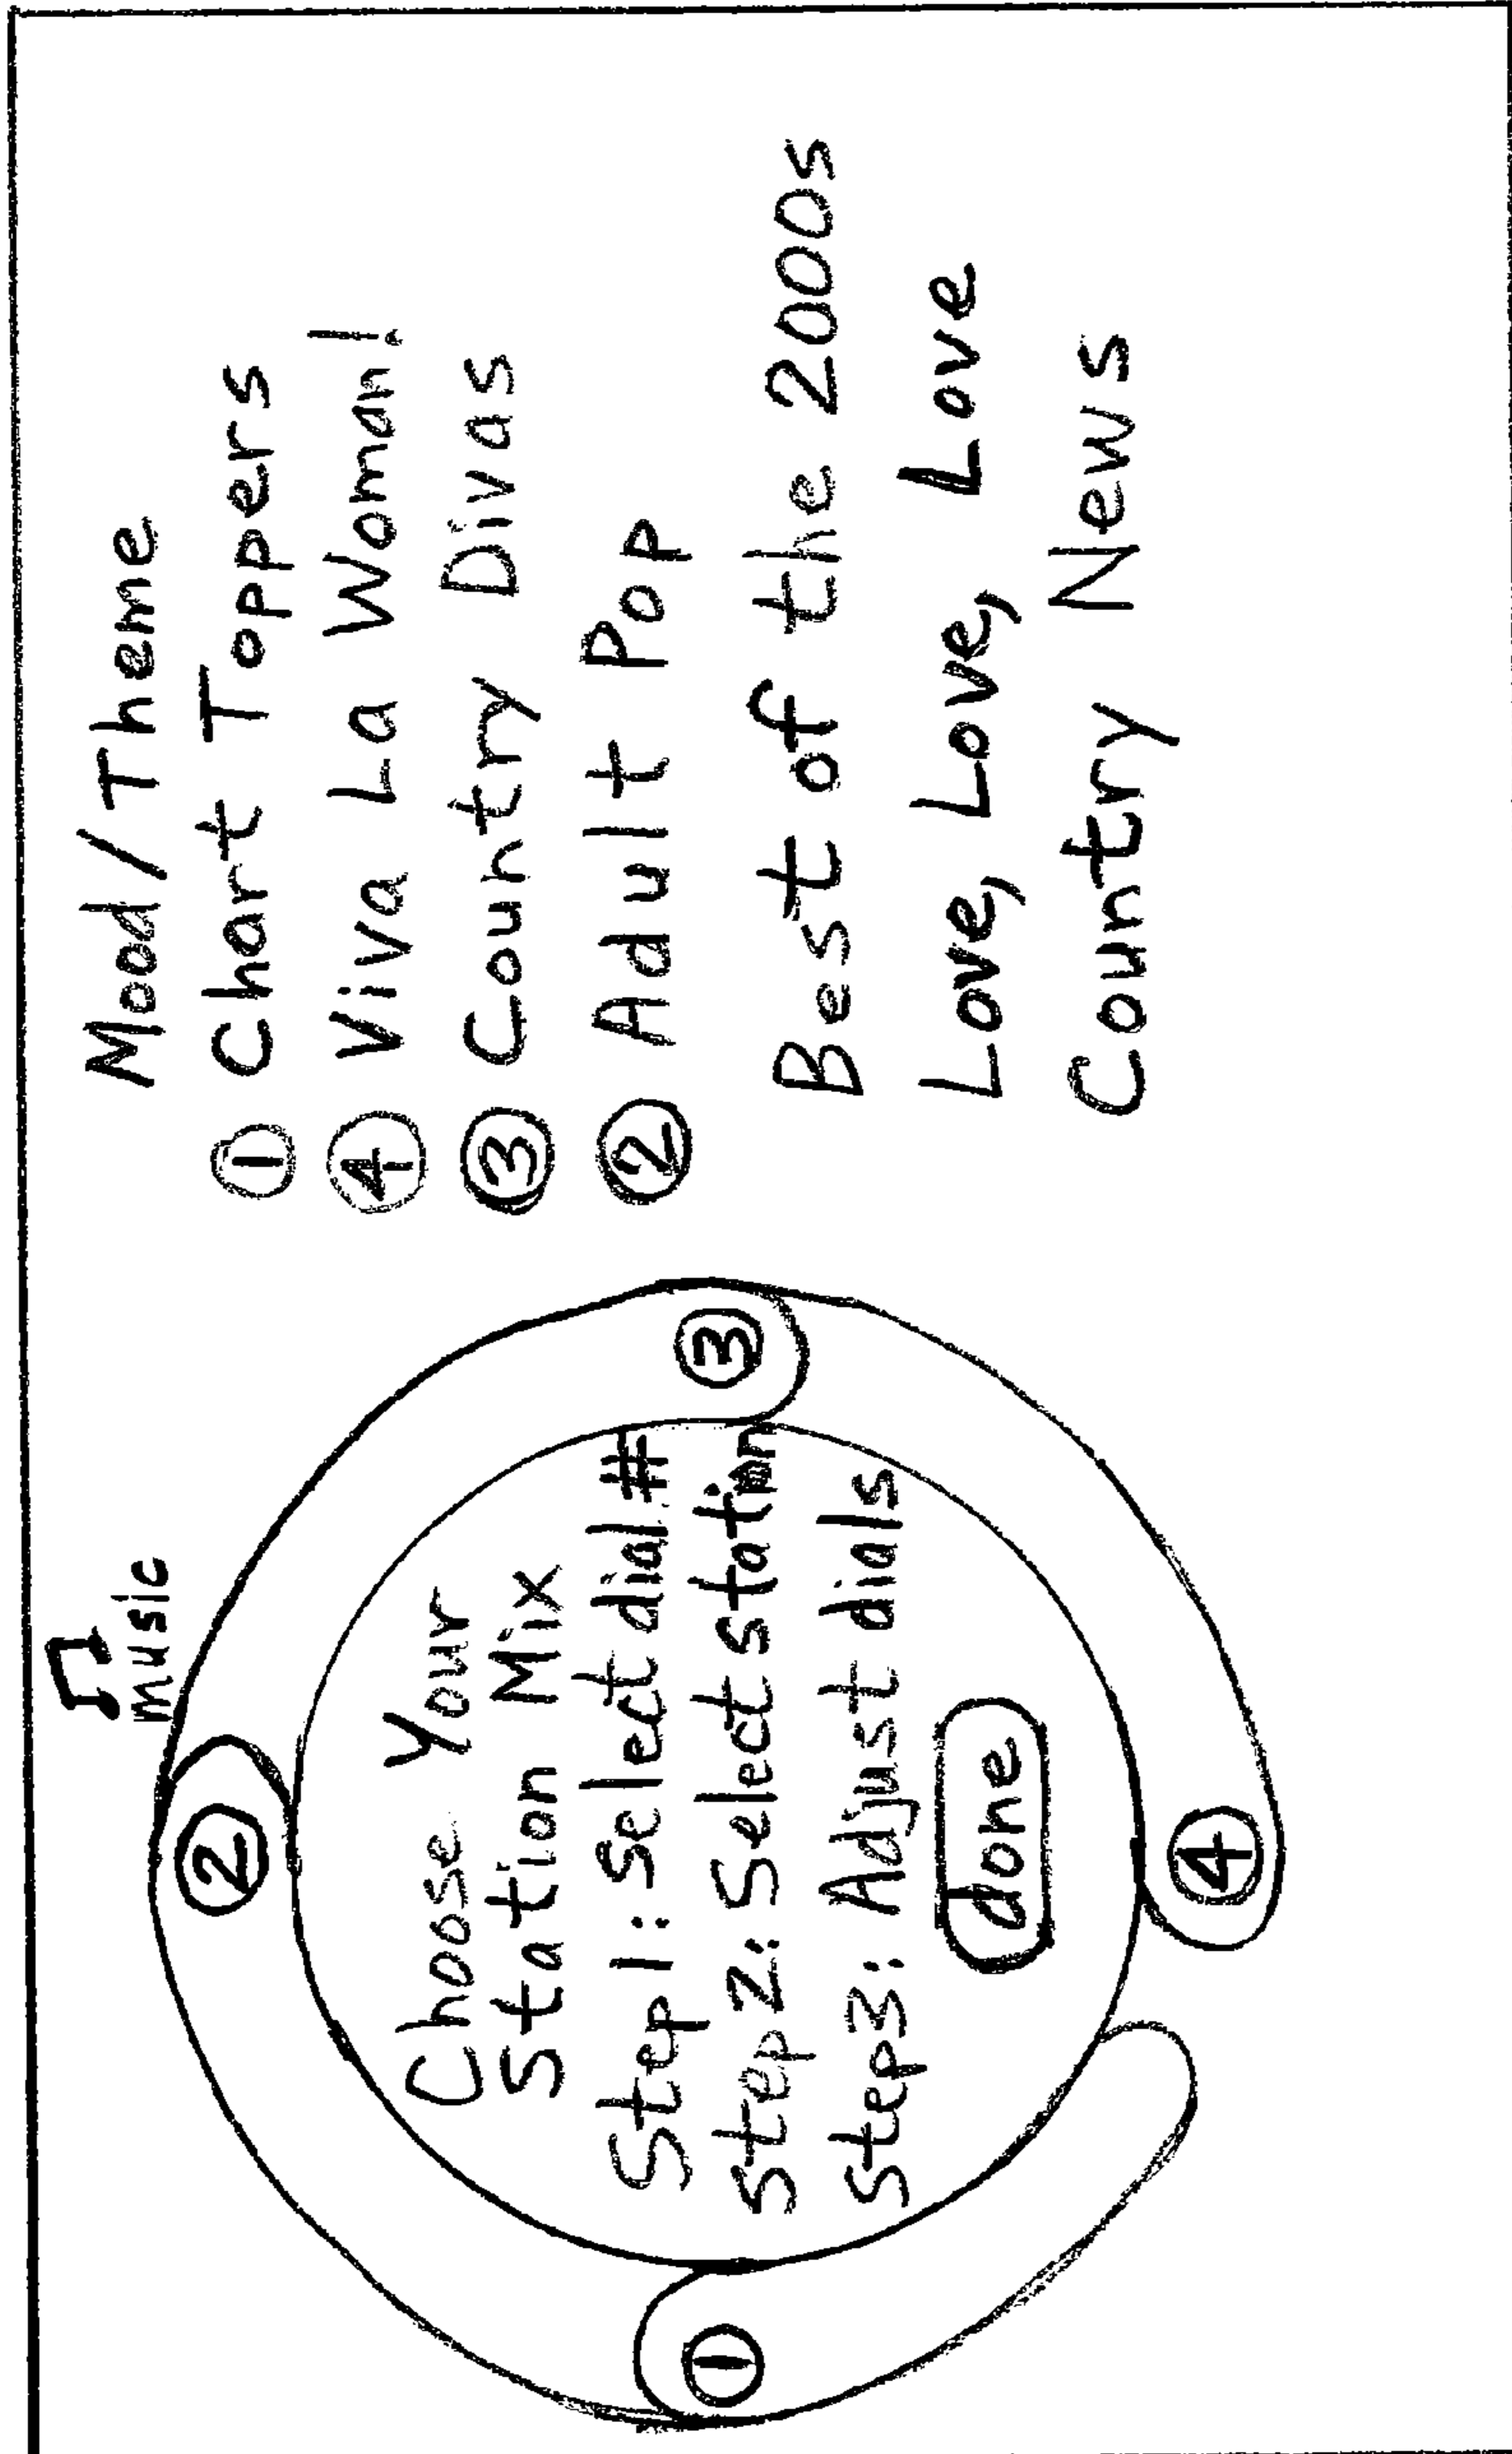 ♫
music
②
③
①
④
Choose Your
Station Mix
Step 1: Select dial #
Step 2: Select station
Step 3: Adjust dials
done
Mood/Theme
① Chart Toppers
④ Viva La Woman!
③ Country Divas
② Adult Pop
Best of the 2000s
Love, Love, Love
Country News